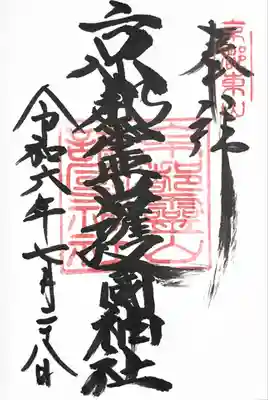 京都東山
奉拝
京都霊山護國神社
京都靈山
護國神社
令和六年七月二十八日